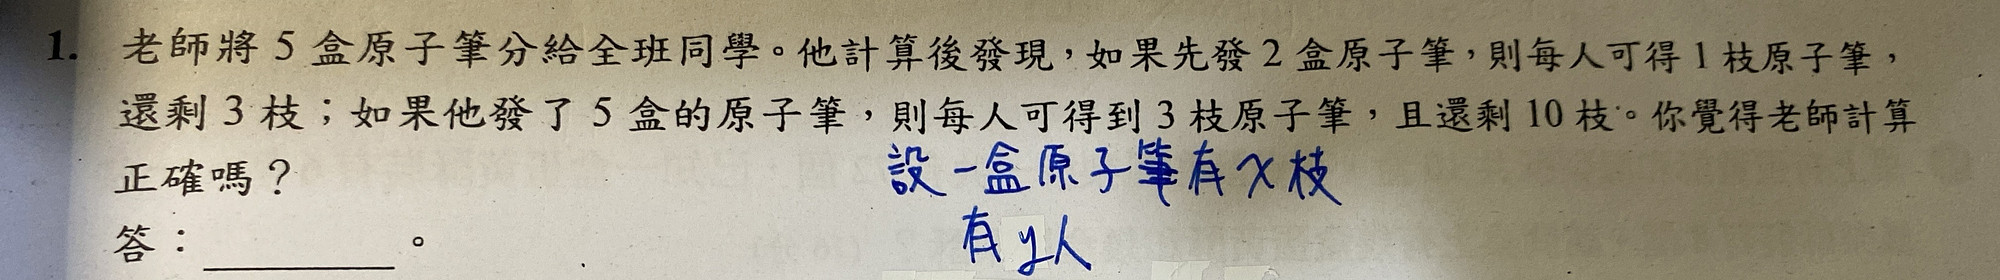 1. 老師將 5 盒原子筆分給全班同學。他計算後發現，如果先發 2 盒原子筆，則每人可得 1 枝原子筆，
還剩 3 枝；如果他發了 5 盒的原子筆，則每人可得到 3 枝原子筆，且還剩 10 枝。你覺得老師計算
正確嗎？
設一盒原子筆有x枝
答：________。
有y人